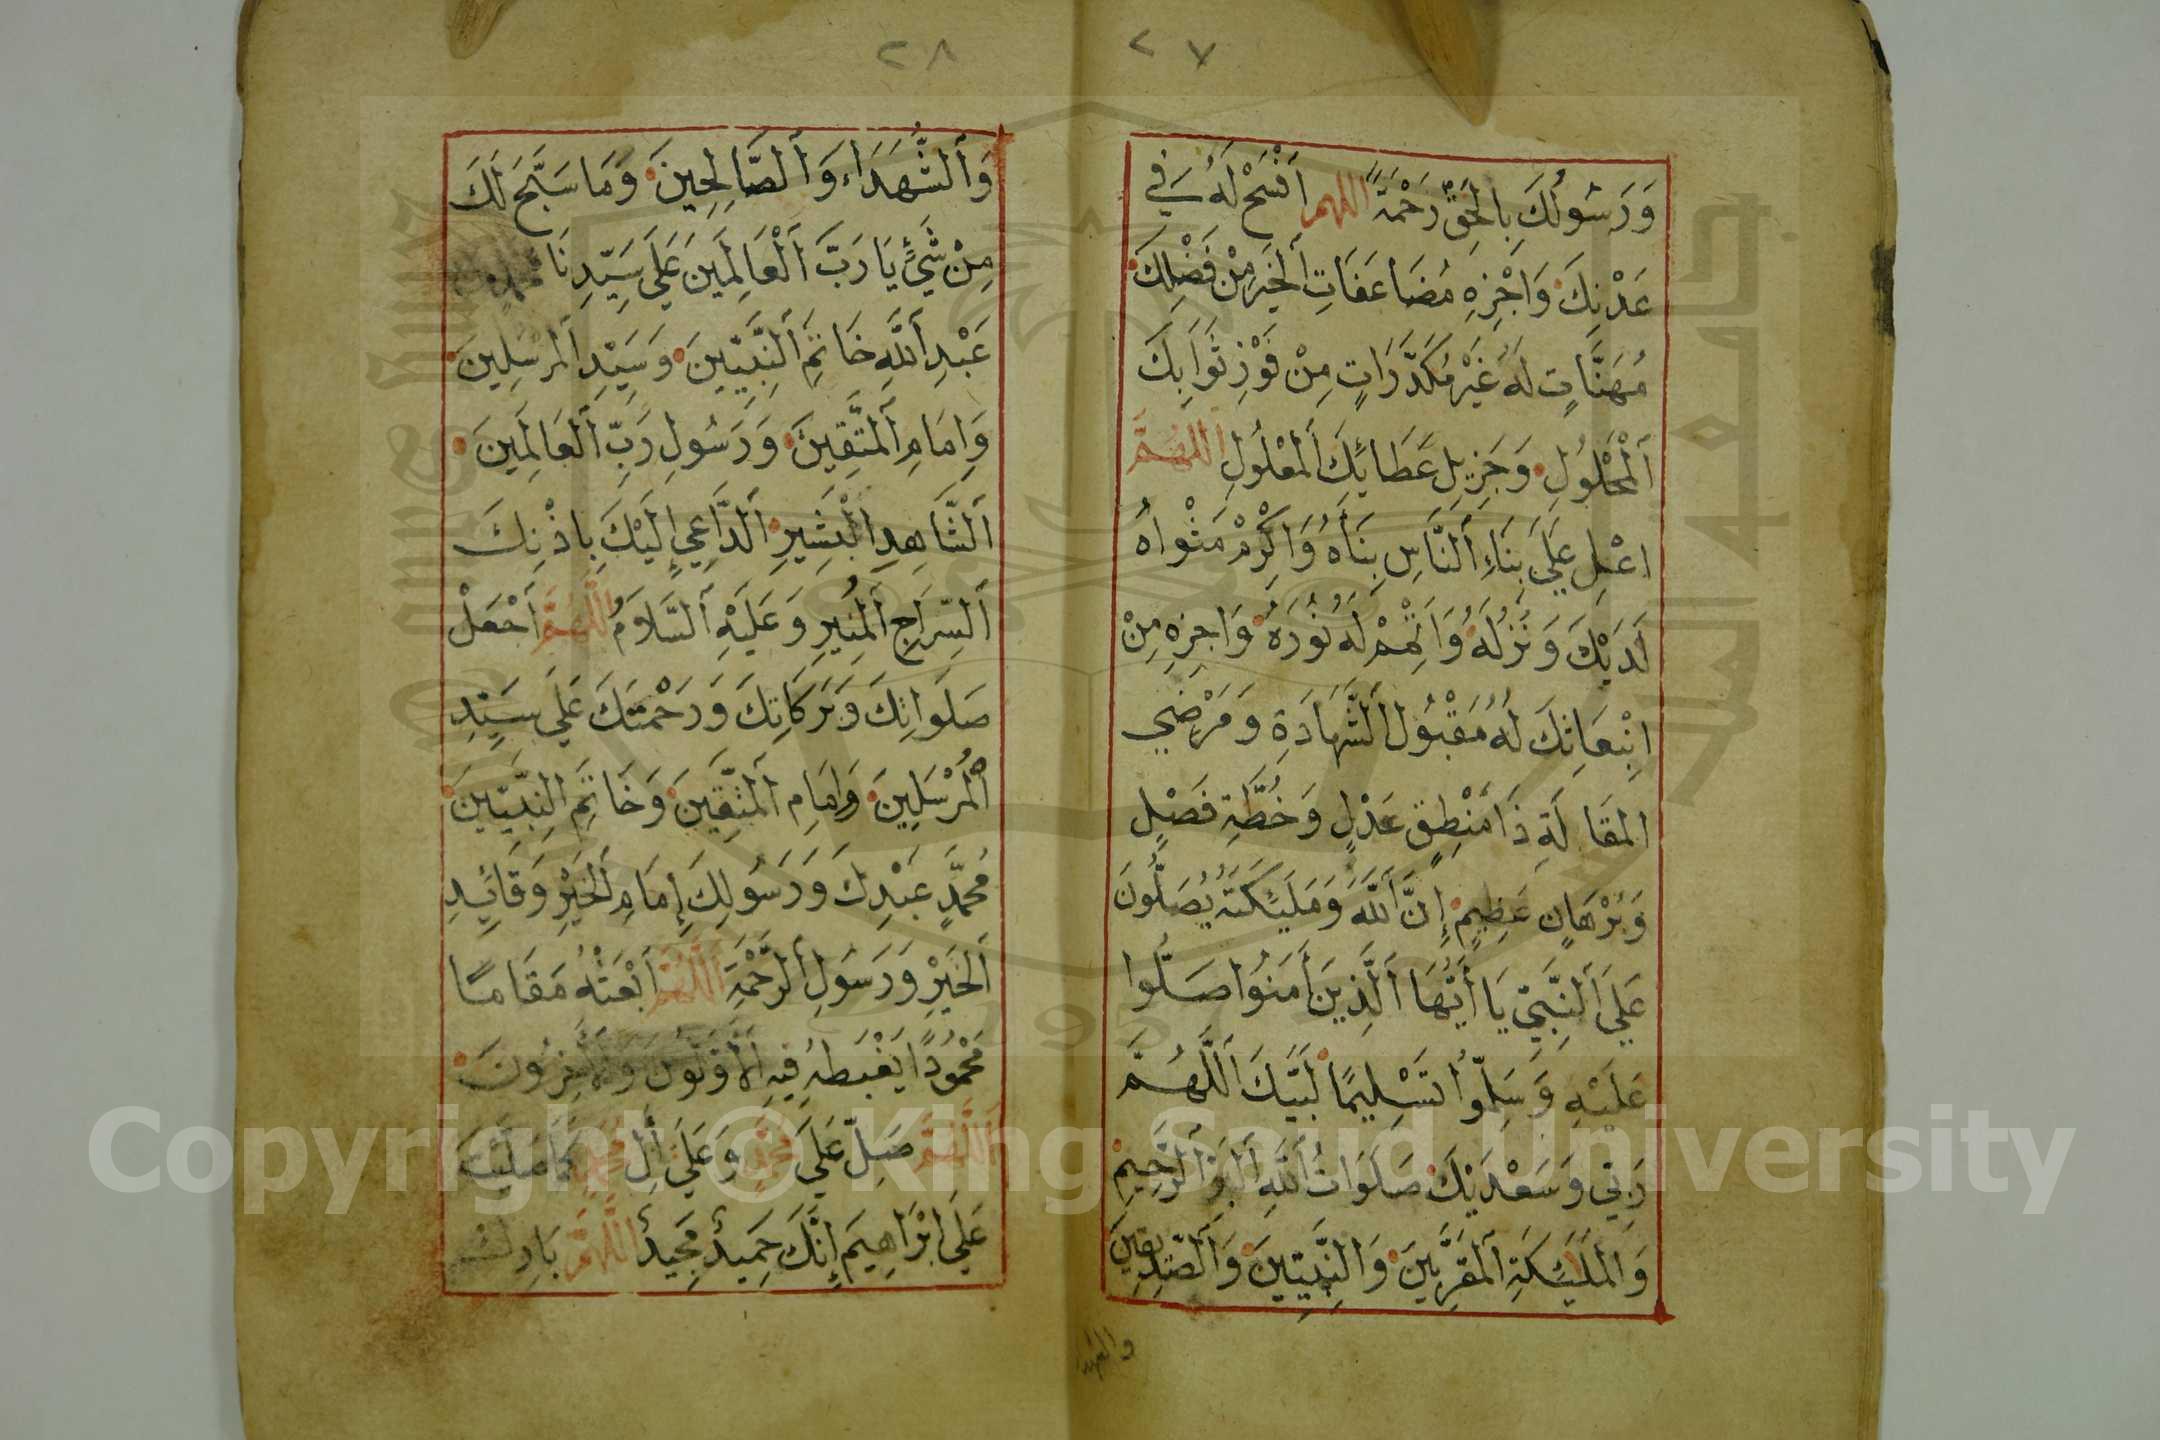 ٢٧
وَرَسُولُكَ بِالْحَقِّ رَحْمَةً اللهم اَفْسَحْ لَهُ فِي
عَدْنِكَ وَاَجْزِهِ مُضَاعَفَاتِ اَلْخَيْرِ مِنْ فَضْلِكَ
مُهَنَّاٰتٍ لَهُ غَيْرَ مُكَدَّرَاتٍ مِنْ فَوْزِ ثَوَابِكَ
اَلْمَحْلُولِ وَجَزِيلِ عَطَائِكَ اَلْمَعْلُولِ اَللَّهُمَّ
اعْلِ عَلَي بِنَاءِ اَلنَّاسِ بِنَاهُ وَاَكْرِمْ مَثْوَاهُ
لَدَيْكَ وَنُزُلَهُ وَاَتْمِمْ لَهُ نُورَهُ وَاجْزِهِ مِنْ
اِبْتِعَاثِكَ لَهُ مَقْبُولَ اَلشَّهَادَةِ وَمَرْضِي
المَقَالَةِ ذَا مَنْطِقٍ عَدْلٍ وَخُطَّةٍ فَصْلٍ
وَبُرْهَانٍ عَظِيمٍ إِنَّ اَللَّهَ وَمَلَئِكَتَهُ يُصَلُّونَ
عَلَي اَلنَّبِيّ يَا أَيُّهَا اَلَّذِينَ أَمَنُوا صَلُّوا
عَلَيْهِ وَسَلِّمُوا تَسْلِيمًا لَبَّيْكَ اَللَّهُمَّ
رَبِّي وَسَعْدَيْكَ صَلَوَاتُ اَللهِ اَلْبَرِّ اَلرَّحِيمِ
وَالْمَلَئِكَةِ اَلْمُقَرَّبِينَ وَالنَّبِيِّينَ وَاَلصِّدِّيقِينَ
والشهدا
٢٨
وَاَلشُّهَدَاءِ وَاَلصَّالِحِينَ وَمَا سَبَّحَ لَكَ
مِنْ شَيْءٍ يَا رَبَّ اَلْعَالَمِينَ عَلَي سَيِّدِنَا مُحَمَّدِ بْنِ
عَبْدِ اَللَّهِ خَاتَمِ اَلنَّبِيِّينَ وَسَيِّدِ اَلْمُرْسَلِينَ
وَاِمَامِ اَلْمُتَّقِينَ وَرَسُولِ رَبِّ اَلْعَالَمِينَ
اَلشَّاهِدِ اَلْبَشِيرِ اَلدَّاعِي إِلَيْكَ بِاِذْنِكَ
اَلسِّرَاجِ اَلْمُنِيرِ وَعَلَيْهِ اَلسَّلاَمُ اَللَّهُمَّ اَجْعَلْ
صَلَوَاتِكَ وَبَرَكَاتِكَ وَرَحْمَتَكَ عَلَي سَيِّدِ
اَلْمُرْسَلِينَ وَاِمَامِ اَلْمُتَّقِينَ وَخَاتَمِ النَّبِيِّينَ
مُحَمَّدٍ عَبْدِكَ وَرَسُولِكَ إِمَامِ اَلْخَيْرِ وَقَائِدِ
اَلْخَيْرِ وَرَسُولِ اَلرَّحْمَةِ اَللَّهُمَّ اَبْعَثْهُ مَقَامًا
مَحْمُودًا يَغْبَطُهُ فِيهِ اَلْأَوَّلُونَ وَالْأَخِرُونَ
اَللَّهُمَّ صَلِّ عَلَي مُحَمَّدٍ وَعَلَي أَلِ مُحَمَّدٍ كَمَا صَلَّيْتَ
عَلَي اِبْرَاهِيمَ إِنَّكَ حَمِيدٌ مَجِيدٌ اَللَّهُمَّ بَارِكْ
Copyright © King Saud University